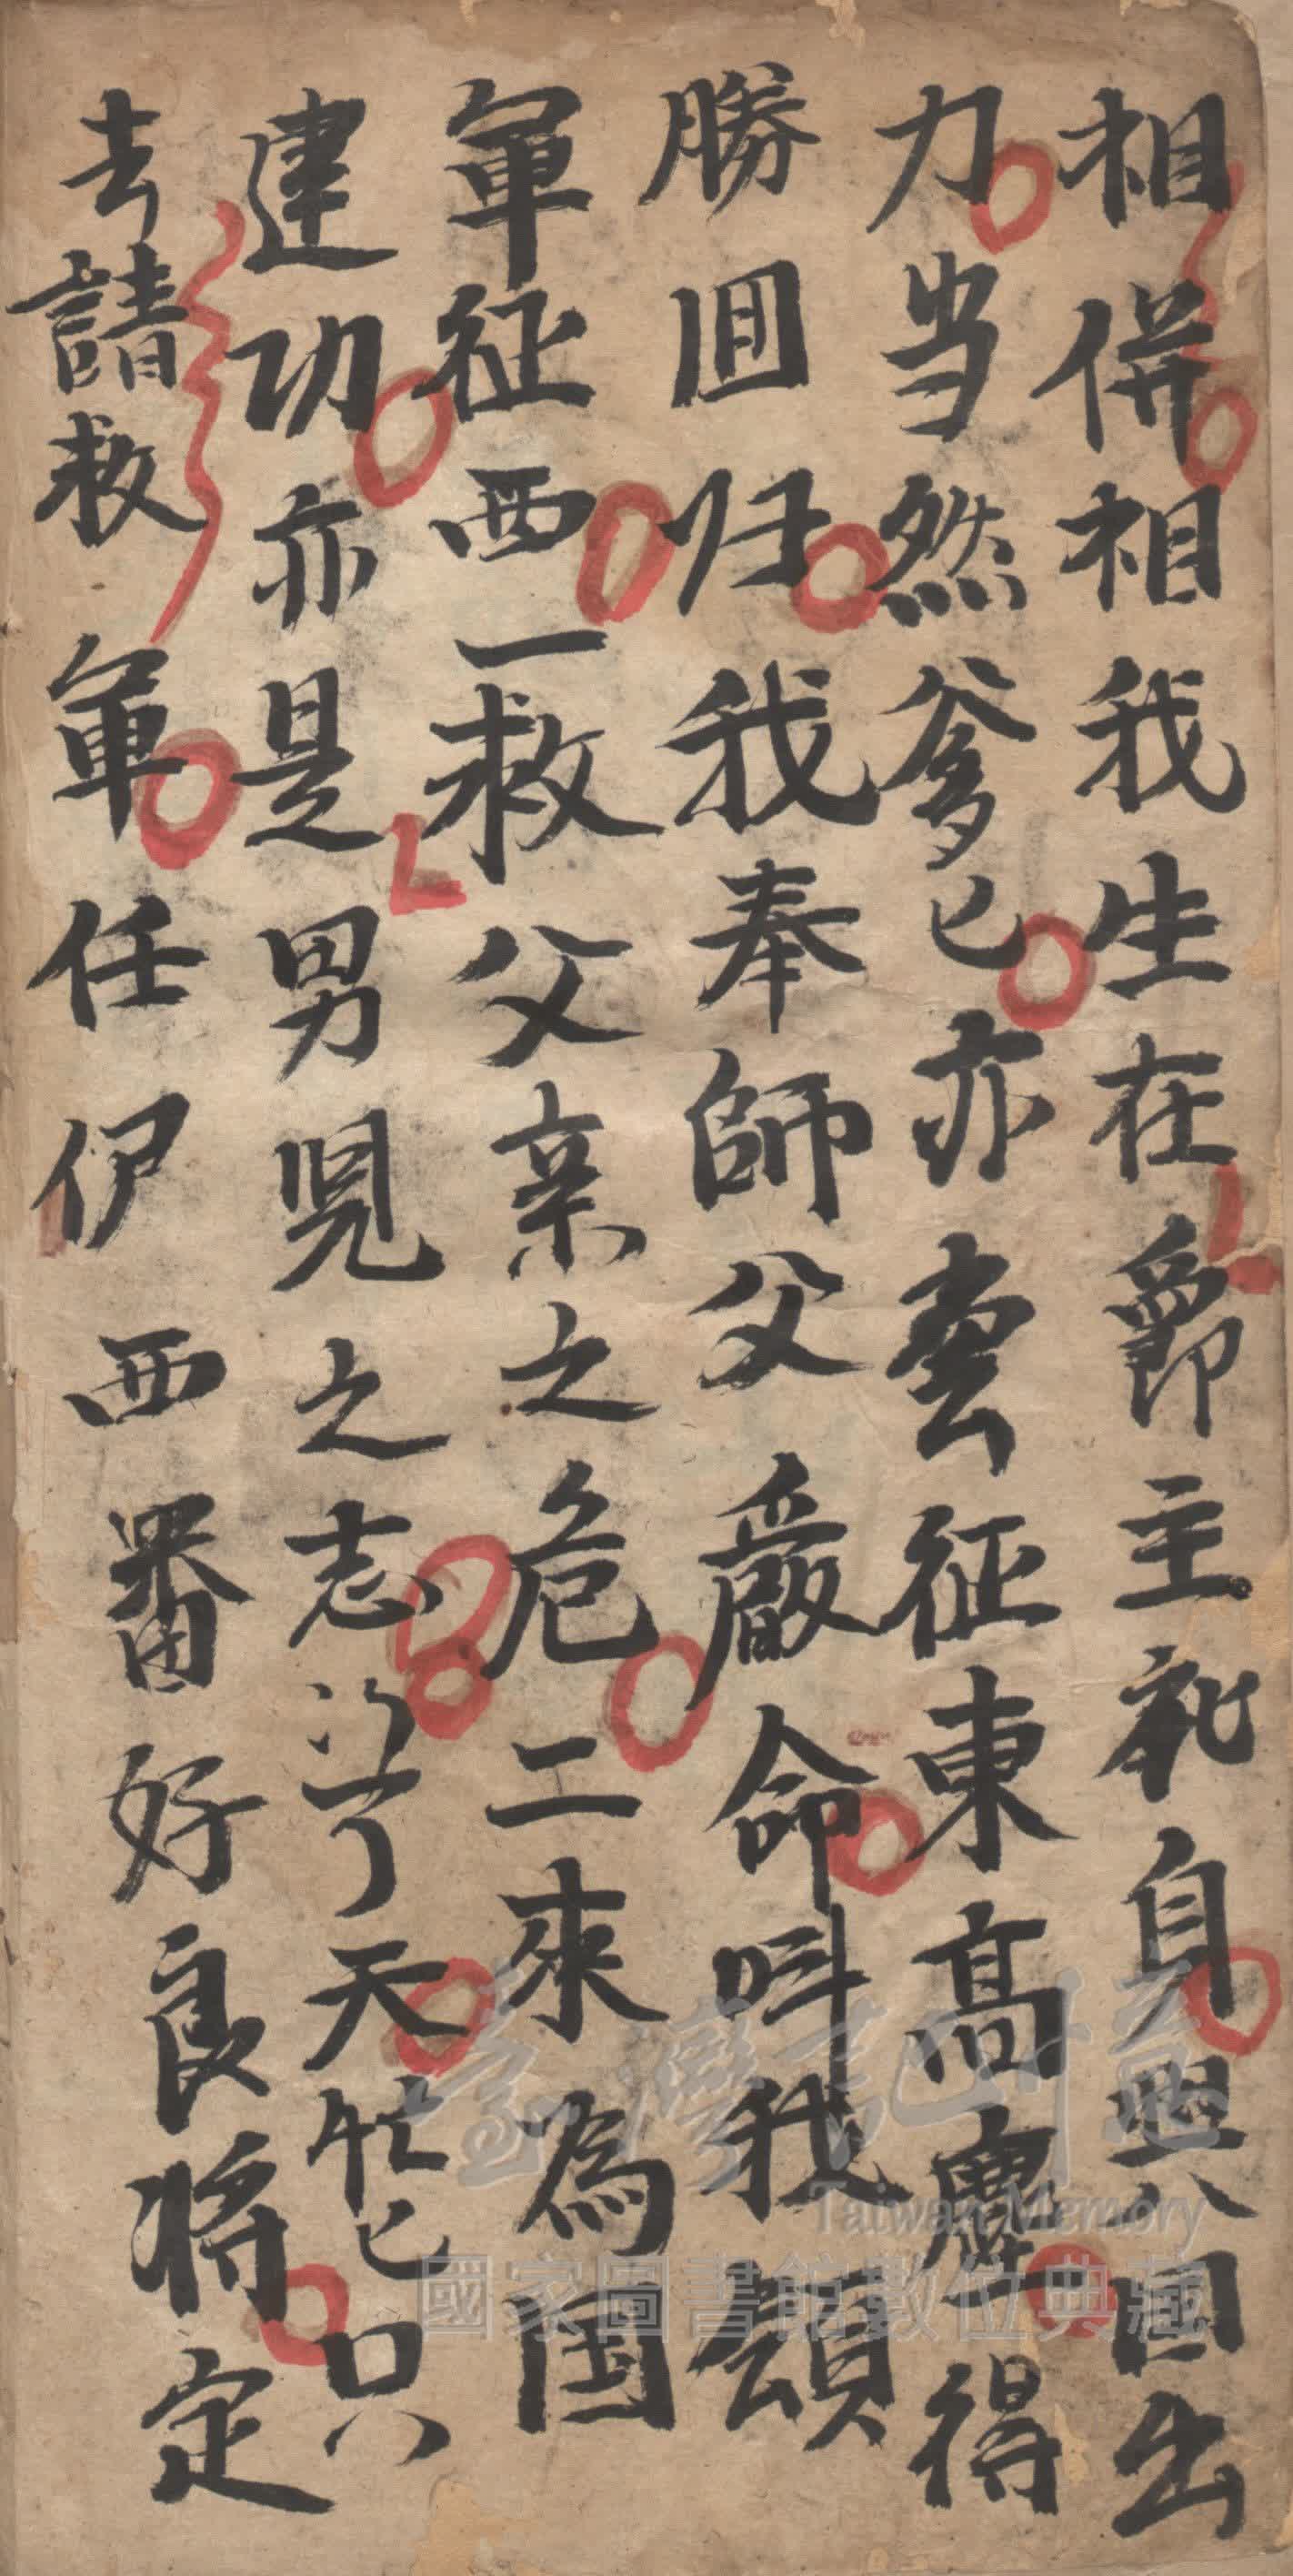 相併相我生在爵主礼自與国出
力当然爹已亦曽征東高麗得
勝囬归我奉師父嚴命呌我領
軍征西一救父亲之危二來為国
建功亦是男児之志汝了天忙已只
去請救軍任伊西番好良將定
臺灣記憶
Taiwan Memory
國家圖書館數位典藏